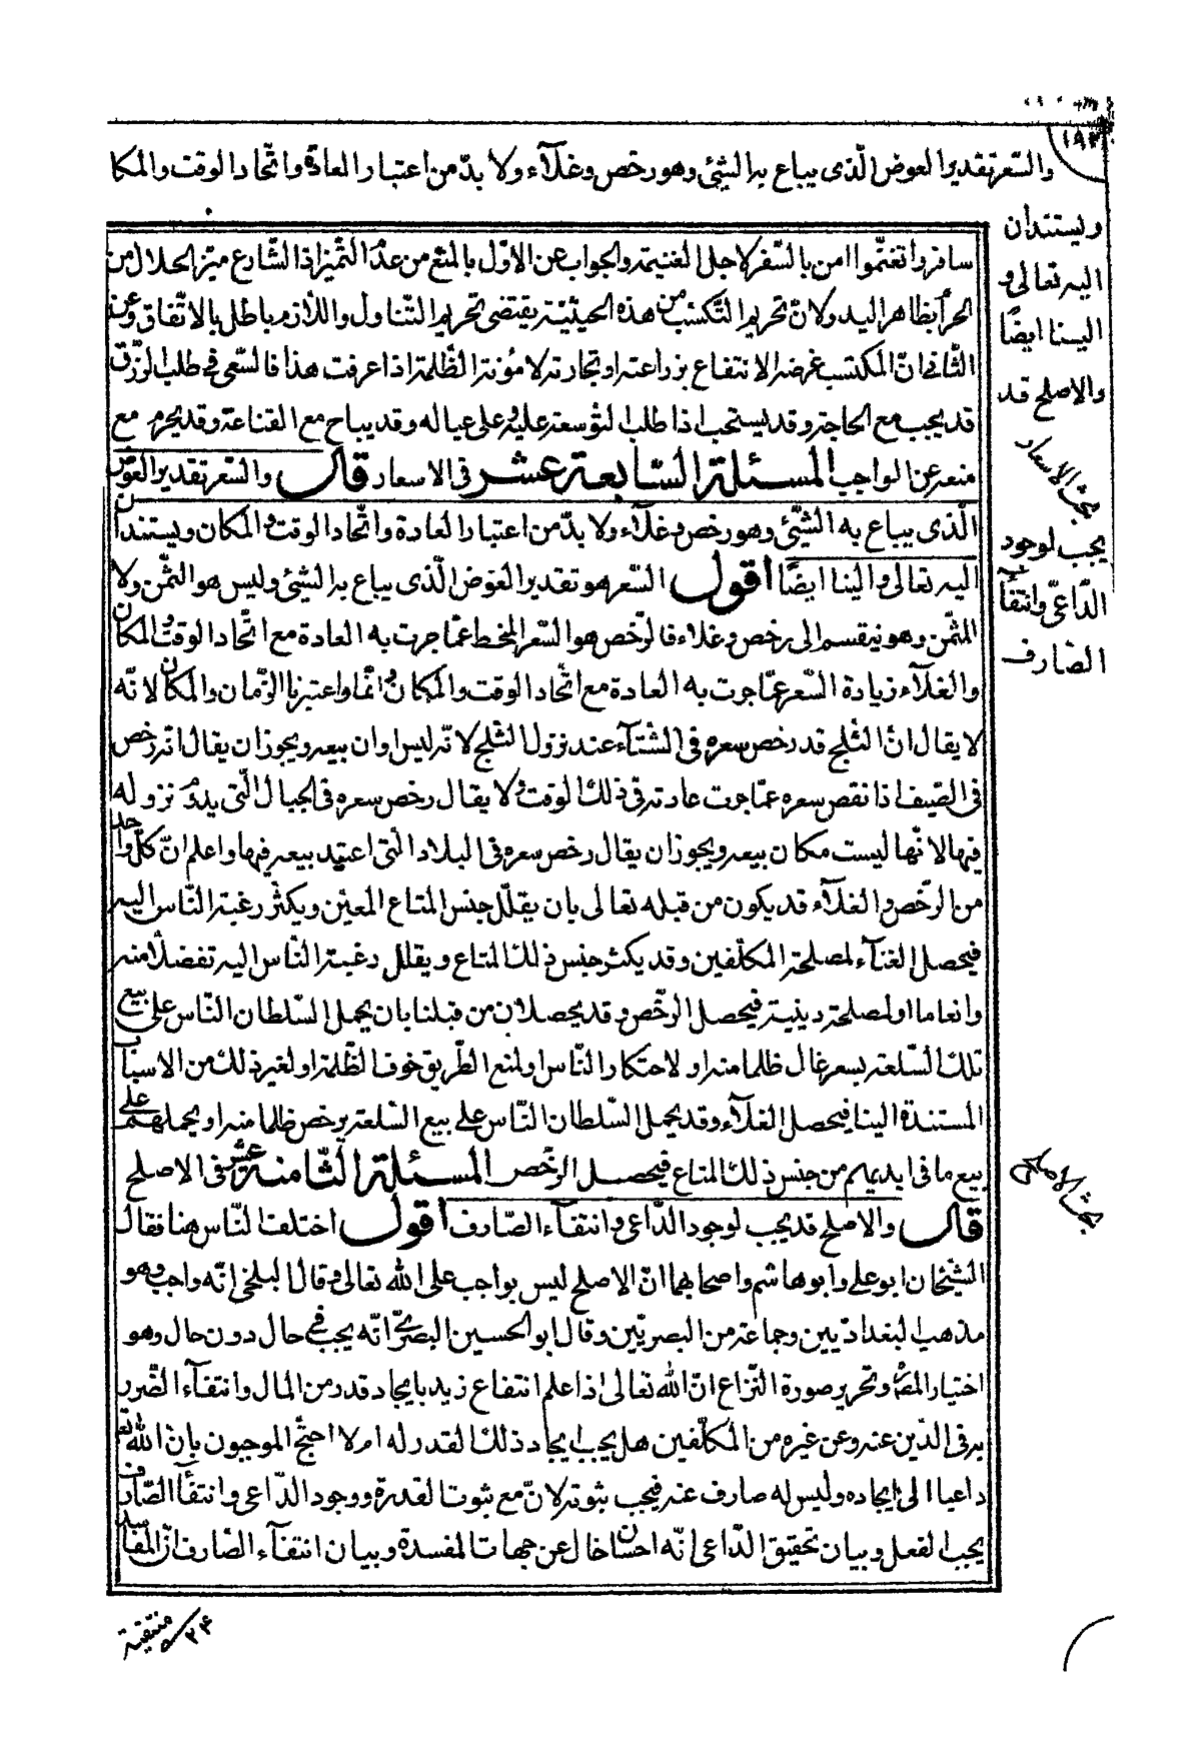 ١٩٣
والسعر تقدير العوض الّذى يباع به الشّئ وهو رخص وغلآء ولا بدّ من اعتبار العادة واتّحاد الوقت والمكا
ويستندان
اليه تعالى و
الينا ايضًا
والاصلح قد
بحث الاسعار
يجب لوجود
الدّاعى وانتفآء
الصّارف
سافروا تغنموا امر بالسّفر لاجل الغنيمة والجواب عن الاوّل بالمنع من عدم التّميز اذ الشّارع ميّز الحلال من
الحرام بظاهر اليد ولانّ تحريم التّكسّب من هذه الحيثيّة يقتضى تحريم التّناول واللّازم باطل بالاتّفاق وعن
الثّانى انّ المكتسب غرضه الانتفاع بزراعته او تجارته لا مؤنة الظّلمة اذا عرفت هذا فالسّعى فى طلب الرّزق
قد يجب مع الحاجة وقد يستحبّ اذا طلب التّوسعة عليه وعلى عياله وقد يباح مع القناعة وقد يحرم مع
منعه عن الواجب المسئلة السّابعة عشر فى الاسعار قال والسّعر تقدير العوض
الّذى يباع به الشّئ وهو رخص وغلآء ولا بدّ من اعتبار العادة واتّحاد الوقت والمكان ويستندان
اليه تعالى والينا ايضًا اقول السّعر هو تقدير العوض الّذى يباع به الشئ وليس هو الثّمن ولا
المثمّن وهو ينقسم الى رخص وغلاء فالرّخص هو السّعر المنحط عمّا جرت به العادة مع اتّحاد الوقت والمكان
والغلآء زيادة السّعر عمّا جرت به العادة مع اتّحاد الوقت والمكان وانّما اعتبرنا الزّمان والمكان لانّه
لا يقال انّ الثلج قد رخص سعره فى الشّتآء عند نزول الثلج لانّه ليس اوان بيعه ويجوز ان يقال انّه رخص
فى الصّيف اذا نقص سعره عمّا جرت عادته فى ذلك الوقت ولا يقال رخص سعره فى الجبال الّتى يدوم نزوله
فيها لانّها ليست مكان بيعه ويجوز ان يقال رخص سعره فى البلاد الّتى اعتيد بيعه فيها واعلم انّ كلّ واحد
من الرّخص والغلآء قد يكون من قبله تعالى بان يقلّل جنس المتاع المعيّن ويكثّر رغبة النّاس اليه
فيحصل الغلآء لمصلحة المكلّفين وقد يكثر جنس ذلك المتاع ويقلل رغبة النّاس اليه تفضلا منه
وانعاما او لمصلحة دينية فيحصل الرّخص وقد يحصلان من قبلنا بان يحمل السّلطان النّاس على بيع
تلك السّلعة بسعر غال ظلما منه او لاحتكار النّاس او لمنع الطّريق خوف الظّلمة او لغير ذلك من الاسباب
المستندة الينا فيحصل الغلآء وقد يحمل السّلطان النّاس على بيع السّلعة برخص ظلما منه او يحملهم على
بيع ما فى ايديهم من جنس ذلك المتاع فيحصل الرّخص المسئلة الثّامنة عشر فى الاصلح
بحث الاصلح
قال والاصلح قد يجب لوجود الدّاعى وانتفآء الصّارف اقول اختلف النّاس هنا فقال
الشّيخان ابو على وابو هاشم واصحابهما انّ الاصلح ليس بواجب على الله تعالى وقال البلخى انّه واجب وهو
مذهب البغداديّين وجماعة من البصريّين وقال ابو الحسين البصرىّ انّه يجب فى حال دون حال وهو
اختيار المصّ وتحرير صورة النّزاع انّ الله تعالى اذا علم انتفاع زيد بايجاد قدر من المال وانتفآء الضّرر
به فى الدّين عنه وعن غيره من المكلّفين هل يجب ايجاد ذلك القدر له ام لا احتجّ الموجبون بانّ لله تعالى
داعيا الى ايجاده وليس له صارف عنه فيجب ثبوته لانّ مع ثبوت القدرة ووجود الدّاعى وانتفآء الصّارف
يجب الفعل وبيان تحقيق الدّاعى انّه احسان خال عن جهات المفسدة وبيان انتفآء الصّارف انّ المفاسد